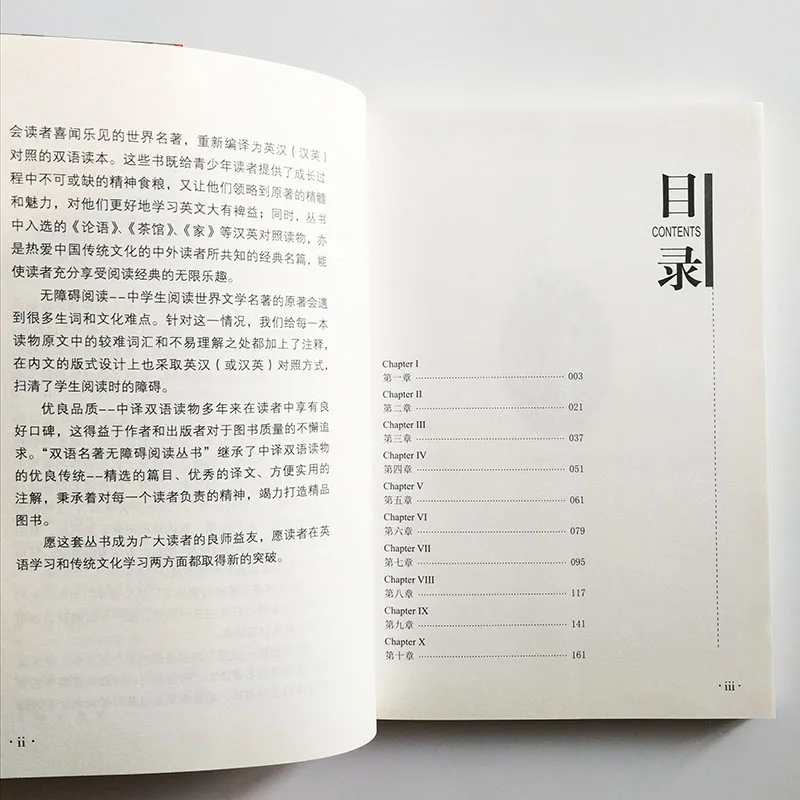 会读者喜闻乐见的世界名著，重新编译为英汉（汉英）
对照的双语读本。这些书既给青少年读者提供了成长过
程中不可或缺的精神食粮，又让他们领略到原著的精髓
和魅力，对他们更好地学习英文大有裨益；同时，丛书
中入选的《论语》、《茶馆》、《家》等汉英对照读物，亦
是热爱中国传统文化的中外读者所共知的经典名篇，能
使读者充分享受阅读经典的无限乐趣。
无障碍阅读--中学生阅读世界文学名著的原著会遇
到很多生词和文化难点。针对这一情况，我们给每一本
读物原文中的较难词汇和不易理解之处都加上了注释，
在内文的版式设计上也采取英汉（或汉英）对照方式，
扫清了学生阅读时的障碍。
优良品质--中译双语读物多年来在读者中享有良
好口碑，这得益于作者和出版者对于图书质量的不懈追
求。“双语名著无障碍阅读丛书”继承了中译双语读物
的优良传统--精选的篇目、优秀的译文、方便实用的
注解，秉承着对每一个读者负责的精神，竭力打造精品
图书。
愿这套丛书成为广大读者的良师益友，愿读者在英
语学习和传统文化学习两方面都取得新的突破。
· ii ·
目
CONTENTS
录
Chapter I
第一章 …… 003
Chapter II
第二章 …… 021
Chapter III
第三章 …… 037
Chapter IV
第四章 …… 051
Chapter V
第五章 …… 061
Chapter VI
第六章 …… 079
Chapter VII
第七章 …… 095
Chapter VIII
第八章 …… 117
Chapter IX
第九章 …… 141
Chapter X
第十章 …… 161
· iii ·